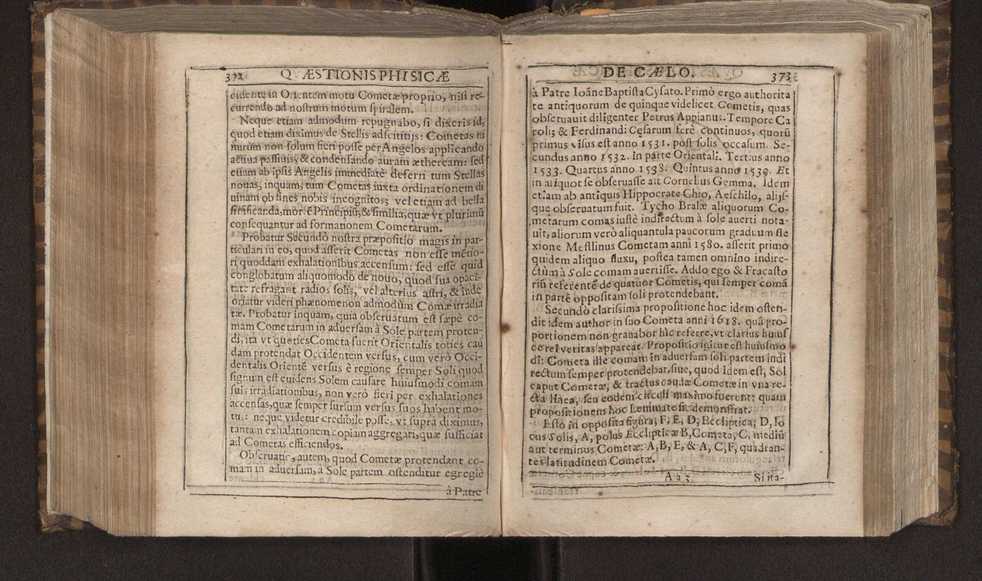 372 QVÆSTIONIS PHISICÆ
cidente in Orientem motu Cometæ proprio, nisi re-
currendo ad nostrum motum spiralem.
Neque etiam admodum repugnabo, si dixeris id,
quod etiam diximus de Stellis adscititijs: Cometas ni
mirum non solum fieri posse per Angelos applicando
activa passiuis, & condensando auram ætheream: sed
etiam ab ipsis Angelis immediatè deferri tum Stellas
nouas, inquam, tum Cometas iuxta ordinationem di
uinam ob fines nobis incognitos; vel etiam ad bella
significanda, morte Principis, & similia, quæ vt plurimũ
consequantur ad formationem Cometarum.
Probatur Secundò nostra præpositio magis in par-
ticulari in eo, quod asserit Cometas non esse meteo-
ri quoddam exhalationibus accensum: sed esse quid
conglobatum aliquomodo de nouo, quod sua opaci-
tate refragant radios solis, vel alterius astri, & inde
oriatur videri phænomenon admodum Comæ irradia
tæ. Probatur inquam, quia obseruatum est sæpè co-
mam Cometarum in aduersam à Sole partem proten-
di, ita vt quoties Cometa fuerit Orientalis toties cau
dam protendat Occidentem versus, cum verò Occi-
dentalis Orientẽ versus è regione semper Soli quod
signum est euidens Solem causare huiusmodi comam
suis irradiationibus, non verò fieri per exhalationes
accensas, quæ semper sursum versus suos habent mo-
tus: neque videtur credibile posse, vt supra diximus,
tantam exhalationem copiam aggregari, quæ sufficiat
ad Cometas efficiendos.
Obseruatis, autem, quod Cometæ protendant co-
mam in aduersum, à Sole partem ostenditur egregiè
à Patre
DE CÆLO. 373
à Patre Ioãne Baptista Cysato. Primò ergo authorita
te antiquorum de quinque videlicet Cometis, quas
obseruauit diligenter Petrus Appianus. Tempore Ca
rolis & Ferdinandi Cęsarum ferè continuos, quorũ
primus visus est anno 1531. post solis occasum. Se-
cundus anno 1532. In parte Orientali. Tertius anno
1533. Quartus anno 1538. Quintus anno 1539. Et
in aliquot se obseruasse ait Cornelius Gemma. Idem
etiam ab antiquis Hippocrate Chio, Aeschilo, alijs-
que obseruatum fuit. Tycho Brahæ aliquorum Co-
metarum comas iustè indirectum à sole auerti nota-
uit, aliorum verò aliquantula paucorum graduum fle
xione Mestlinus Cometam anni 1580. asserit primo
quidem aliquo fluxu, postea tamen omnino indire-
ctũm à Sole comam auertisse. Addo ego & Fracasto
riũ referentẽ de quatuor Cometis, qui semper comã
in partẽ oppositam soli protendebant.
Secundò clarissima propositione hoc idem osten-
dit idem author in suo Cometa anni 1618. quã pro-
portionem non grauabor hic referre, vt clarius huius
ce rei veritas appareat. Propositio igitur est huiusmo
di: Cometa ille comam in aduersam soli partem indi
rectum semper protendebat, siue, quod Idem est, Sol
caput Cometæ, & tractus caudæ Cometæ in vna re-
cta linea, seu eodem circuli maximo fuerent: quam
propositionem hoc Lemmate sic demonstrat.
Esto in opposita figura; F, E, D, Ecclyptica; D, lo
cus Solis, A, polus Eclipticæ B, Cometa, C, mediũ
aut terminus Cometæ: A, B, E, & A, C, F, quadran-
tes latitudinem Cometæ.
Aa 3 Sit ita-